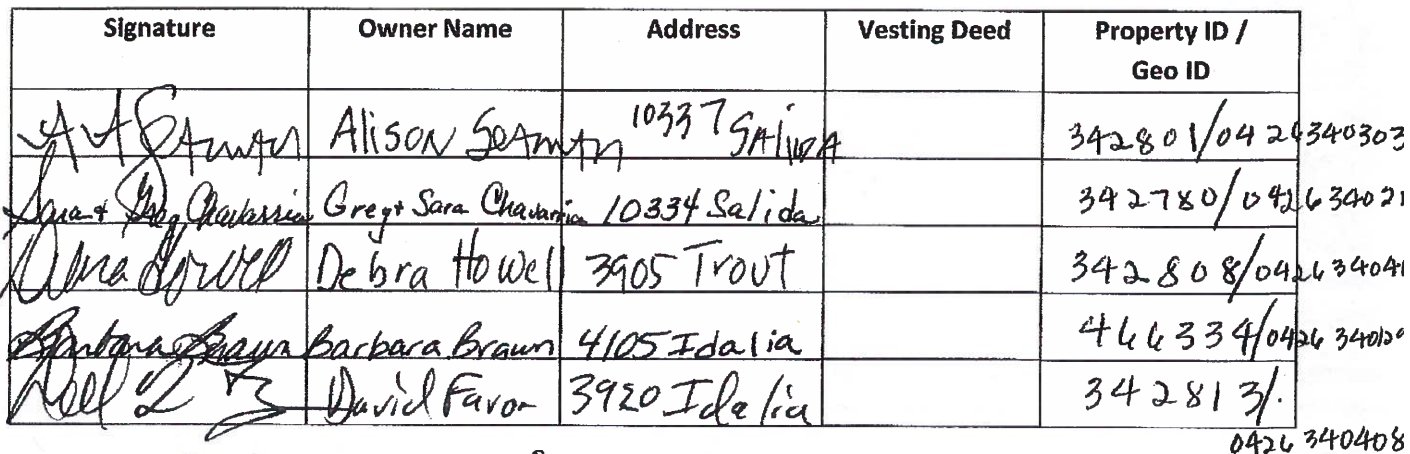 Signature Owner Name Address Vesting Deed Property ID /
Geo ID
A A Seaman Alison Seaman 10337 Salida 342801/0426340303
Sara + Greg Chavarria Greg + Sara Chavarria 10334 Salida 342780/042634021
Debra Howell Debra Howell 3905 Trout 342808/042634041
Barbara Braun Barbara Braun 4105 Idalia 466334/0426340129
David Favor 3920 Idalia 342813/.
0426340408